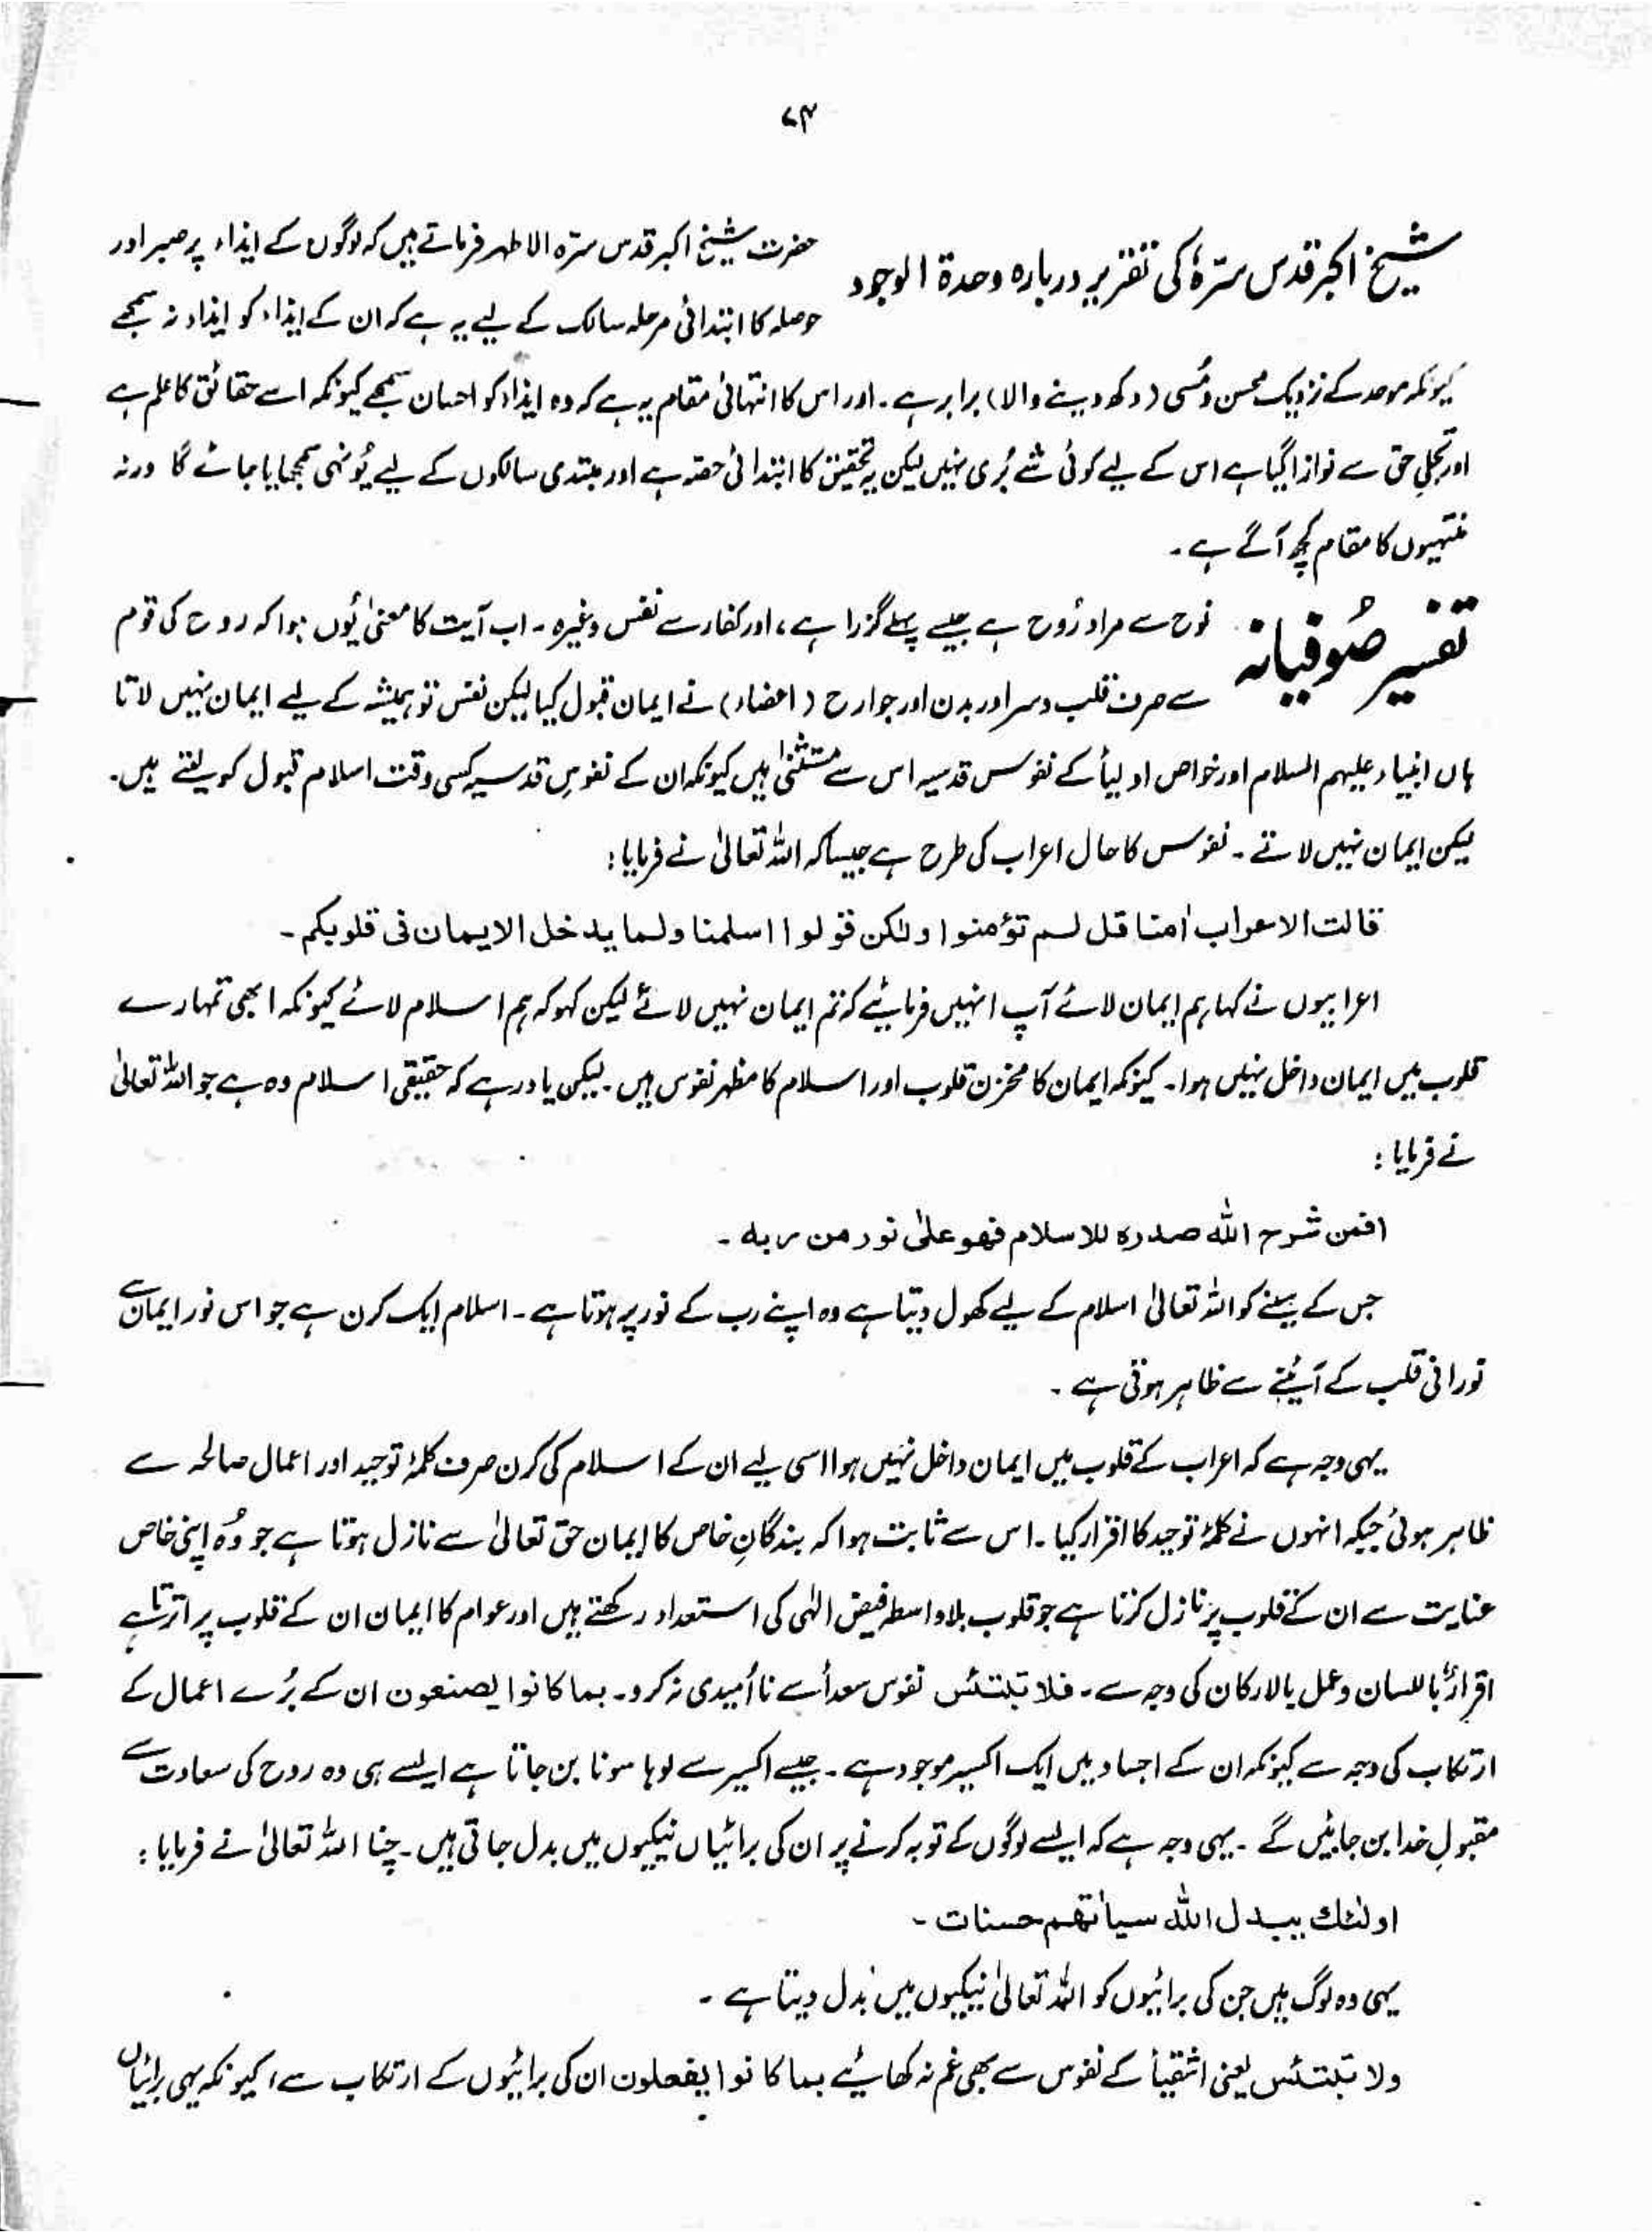 ۷۴
شیخ اکبر قدس سرّہٗ کی تقریر دربارہ وحدۃ الوجود
حضرت شیخ اکبر قدس سرّہ الاطہر فرماتے ہیں کہ لوگوں کے ایذاء پر صبر اور
حوصلہ کا ابتدائی مرحلہ سالک کے لیے یہ ہے کہ ان کے ایذاء کو ایذاء نہ سمجھے
کیونکہ موحد کے نزدیک محسن و مُسی (دکھ دینے والا) برابر ہے۔ اور اس کا انتہائی مقام یہ ہے کہ وہ ایذاء کو احسان سمجھے کیونکہ اسے حقائق کا علم ہے
اور تجلیِ حق سے نوازا گیا ہے اس کے لیے کوئی شے بُری نہیں لیکن یہ تحقیق کا ابتدائی حصّہ ہے اور مبتدی سالکوں کے لیے یُونہی سمجھایا جائے گا ورنہ
منتہیوں کا مقام کچھ آگے ہے۔
تفسیر صُوفیانہ
نوح سے مراد رُوح ہے جیسے پہلے گزرا ہے، اور کفار سے نفس وغیرہ۔ اب آیت کا معنیٰ یُوں ہوا کہ روح کی قوم
سے صرف قلب و سر اور بدن اور جوارح (اعضاء) نے ایمان قبول کیا لیکن نفس تو ہمیشہ کے لیے ایمان نہیں لاتا
ہاں انبیاء علیہم السلام اور خواص اولیأ کے نفوس قدسیہ اس سے مستثنیٰ ہیں کیونکہ ان کے نفوسِ قدسیہ کسی وقت اسلام قبول کو یلتے ہیں۔
لیکن ایمان نہیں لاتے۔ نفوس کا حال اعراب کی طرح ہے جیسا کہ اللہ تعالیٰ نے فرمایا:
قالت الاعراب اٰمنا قل لسم تؤمنوا ولٰکن قولوا اسلمنا ولما یدخل الایمان فی قلوبکم۔
اعرابیوں نے کہا ہم ایمان لائے آپ انہیں فرمائیے کہ تم ایمان نہیں لائے لیکن کہو کہ ہم اسلام لائے کیونکہ ابھی تمہارے
قلوب میں ایمان داخل نہیں ہوا۔ کیونکہ ایمان کا مخزن قلوب اور اسلام کا مظہر نفوس ہیں۔ لیکن یاد رہے کہ حقیقی اسلام وہ ہے جو اللہ تعالیٰ
نے فرمایا:
افمن شرح اللہ صدرہ للاسلام فھو علیٰ نور من ربہ۔
جس کے سینے کو اللہ تعالیٰ اسلام کے لیے کھول دیتا ہے وہ اپنے رب کے نور پر ہوتا ہے۔ اسلام ایک کرن ہے جو اس نور ایمان سے
نورانی قلب کے آئینے سے ظاہر ہوتی ہے۔
یہی وجہ ہے کہ اعراب کے قلوب میں ایمان داخل نہیں ہوا اسی لیے ان کے اسلام کی کرن صرف کلمۂ توحید اور اعمال صالحہ سے
ظاہر ہوئی جبکہ انہوں نے کلمۂ توحید کا اقرار کیا۔ اس سے ثابت ہوا کہ بندگانِ خاص کا ایمان حق تعالیٰ سے نازل ہوتا ہے جو وُہ اپنی خاص
عنایت سے ان کے قلوب پر نازل کرتا ہے جو قلوب بلاواسطہ فیض الٰہی کی استعداد رکھتے ہیں اور عوام کا ایمان ان کے قلوب پر اترتا ہے
اقرار باللسان و عمل بالارکان کی وجہ سے۔ فلا تبتئس نفوس سعدأ سے ناامیدی نہ کرو۔ بما کانوا یصنعون ان کے بُرے اعمال کے
ارتکاب کی وجہ سے کیونکہ ان کے اجساد میں ایک اکسیر موجود ہے۔ جیسے اکسیر سے لوہا سونا بن جاتا ہے ایسے ہی وہ روح کی سعادت سے
مقبولِ خدا بن جائیں گے۔ یہی وجہ ہے کہ ایسے لوگوں کے توبہ کرنے پر ان کی برائیاں نیکیوں میں بدل جاتی ہیں۔ چنا اللہ تعالیٰ نے فرمایا:
اولٰئك یبدل اللہ سیاٰتھم حسنات۔
یہی وہ لوگ ہیں جن کی برائیوں کو اللہ تعالیٰ نیکیوں میں بدل دیتا ہے۔
ولا تبتئس یعنی اشقیأ کے نفوس سے بھی غم نہ کھائیے بما کانوا یفعلون ان کی برائیوں کے ارتکاب سے، کیونکہ یہی برائیاں